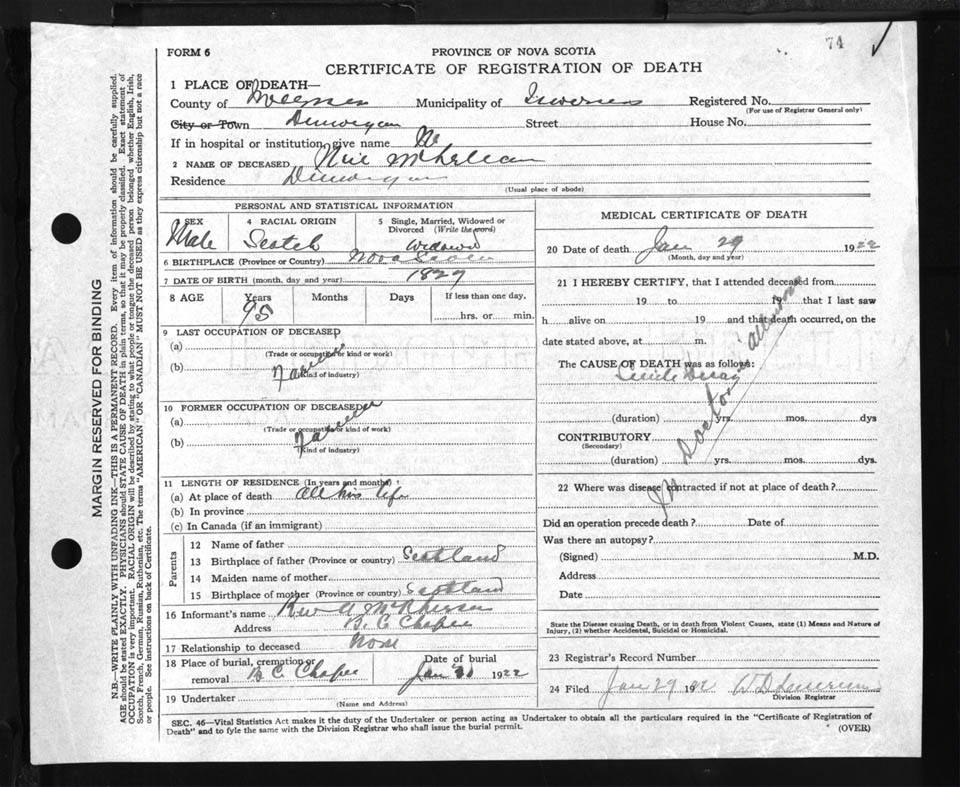 74
FORM 6
PROVINCE OF NOVA SCOTIA
CERTIFICATE OF REGISTRATION OF DEATH
1 PLACE OF DEATH—
County of Inverness Municipality of Inverness Registered No.
(For use of Registrar General only)
City or Town Dunvegan Street House No.
If in hospital or institution, give name
2 NAME OF DECEASED Neil
Residence Dunvegan
(Usual place of abode)
PERSONAL AND STATISTICAL INFORMATION
3 SEX 4 RACIAL ORIGIN 5 Single, Married, Widowed or Divorced (Write the word)
Male Scotch Widowed
6 BIRTHPLACE (Province or Country) Nova Scotia
7 DATE OF BIRTH (month, day and year) 1827
8 AGE Years Months Days If less than one day,
95 hrs. or min.
9 LAST OCCUPATION OF DECEASED
(a)
(Trade or occupation or kind or work)
(b) Farmer
(Kind of industry)
10 FORMER OCCUPATION OF DECEASED
(a)
(Trade or occupation or kind of work)
(b) Farmer
(Kind of industry)
11 LENGTH OF RESIDENCE (In years and months)
(a) At place of death All his life
(b) In province
(c) In Canada (if an immigrant)
Parents
12 Name of father
13 Birthplace of father (Province or country) Scotland
14 Maiden name of mother
15 Birthplace of mother (Province or country) Scotland
16 Informant's name Rev A McPherson
Address B. C. Chapel
17 Relationship to deceased None
18 Place of burial, cremation or removal B. C. Chapel
Date of burial
Jan 1922
19 Undertaker
(Name and Address)
MEDICAL CERTIFICATE OF DEATH
20 Date of death Jan 29 1922
(Month, day and year)
21 I HEREBY CERTIFY, that I attended deceased from
19 to 19 that I last saw
h alive on 19 and that death occurred, on the
date stated above, at m.
The CAUSE OF DEATH was as follows:
Senile Decay
(duration) yrs. mos. dys
CONTRIBUTORY
(Secondary)
(duration) yrs. mos. dys.
No Doctor attendance
22 Where was disease contracted if not at place of death?
Did an operation precede death? Date of
Was there an autopsy?
(Signed) M.D.
Address
Date
State the Disease causing Death, or in death from Violent Causes, state (1) Means and Nature of
Injury, (2) whether Accidental, Suicidal or Homicidal.
23 Registrar's Record Number
24 Filed Jan 29 1922 W D Lawrence
Division Registrar
SEC. 46—Vital Statistics Act makes it the duty of the Undertaker or person acting as Undertaker to obtain all the particulars required in the "Certificate of Registration of
Death" and to fyle the same with the Division Registrar who shall issue the burial permit.
(OVER)
MARGIN RESERVED FOR BINDING
N.B.—WRITE PLAINLY WITH UNFADING INK—THIS IS A PERMANENT RECORD. Every item of information should be carefully supplied.
AGE should be stated EXACTLY. PHYSICIANS should STATE CAUSE OF DEATH in plain terms, so that it may be properly classified. Exact statement of
OCCUPATION is very important. RACIAL ORIGIN will be described by stating to what people or tongue the deceased person belonged whether English, Irish,
Scotch, French, German, Russian, Ruthenian, etc. The terms "AMERICAN" OR "CANADIAN" MUST NOT BE USED as they express citizenship but not a race
or people. See instructions on back of Certificate.